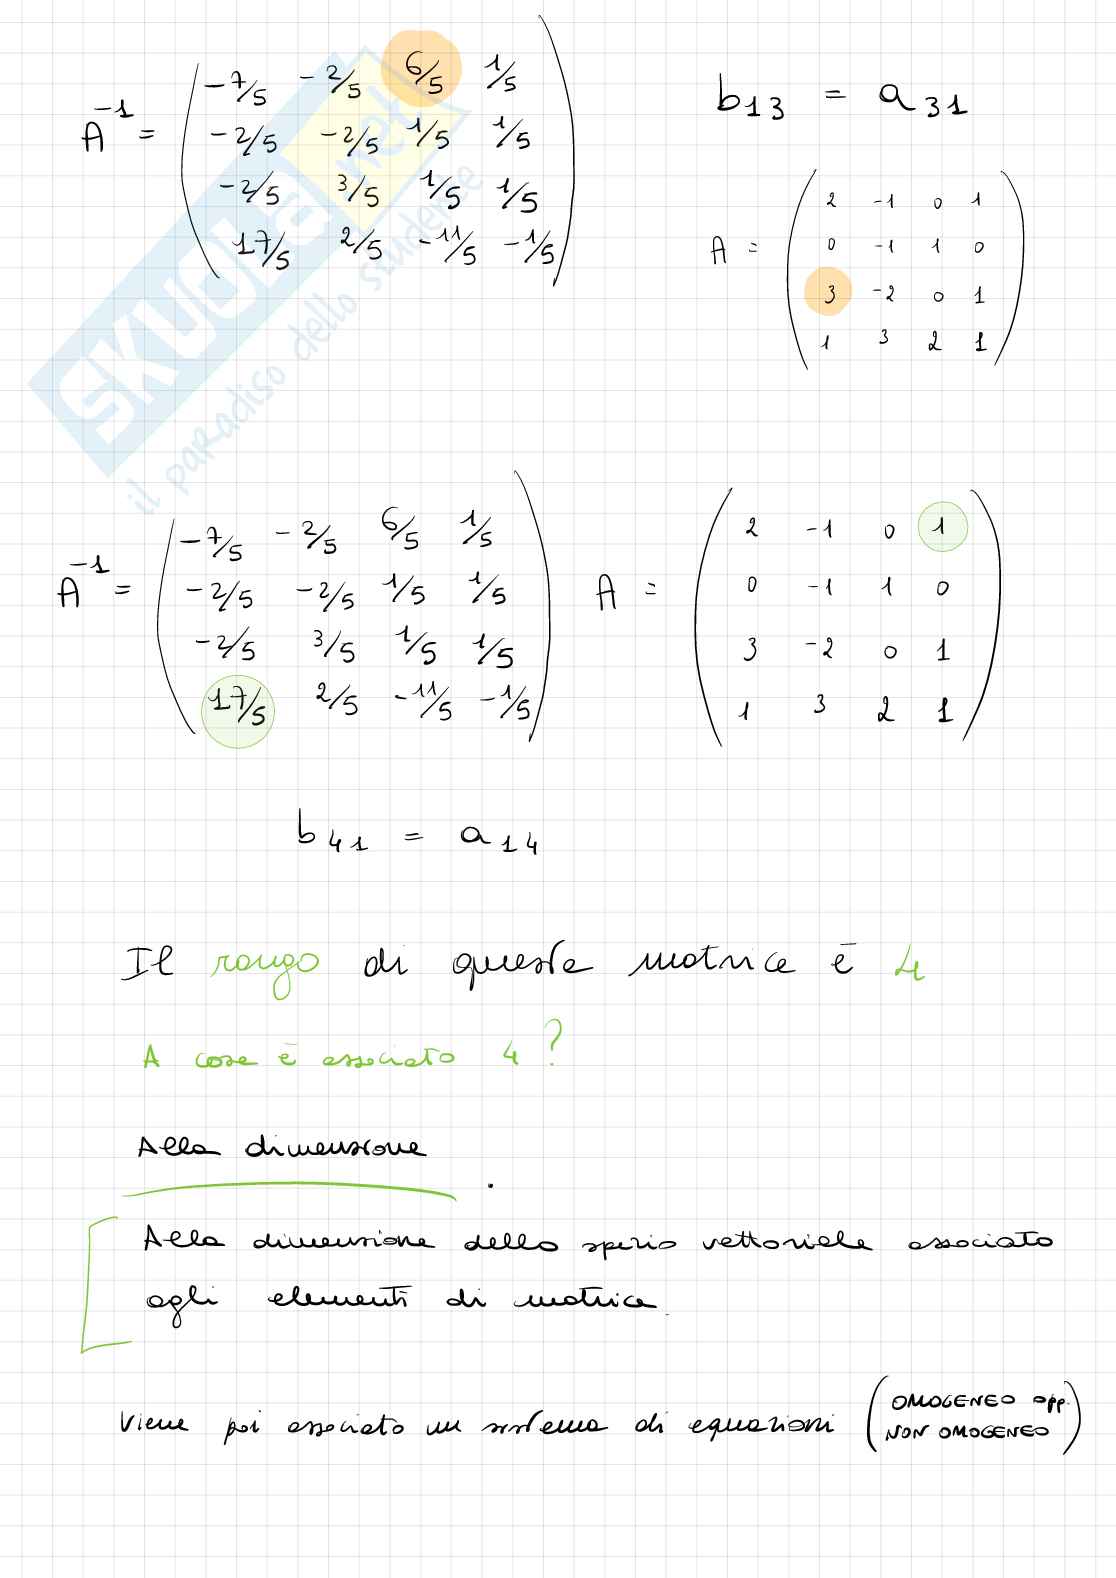 A⁻¹ = ( -7/5 -2/5 6/5 1/5
-2/5 -2/5 1/5 1/5
-2/5 3/5 1/5 1/5
17/5 2/5 -11/5 -1/5 )
b₁₃ = a₃₁
A = ( 2 -1 0 1
0 -1 1 0
3 -2 0 1
1 3 2 1 )
SKUOLA.net
il paradiso dello studente
A⁻¹ = ( -7/5 -2/5 6/5 1/5
-2/5 -2/5 1/5 1/5
-2/5 3/5 1/5 1/5
17/5 2/5 -11/5 -1/5 )
A = ( 2 -1 0 1
0 -1 1 0
3 -2 0 1
1 3 2 1 )
b₄₁ = a₁₄
Il rango di questa matrice è 4
A cosa è associato 4?
Alla dimensione .
Alla dimensione dello spazio vettoriale associato
agli elementi di matrice.
Viene poi associato un sistema di equazioni (OMOGENEO opp.
NON OMOGENEO)